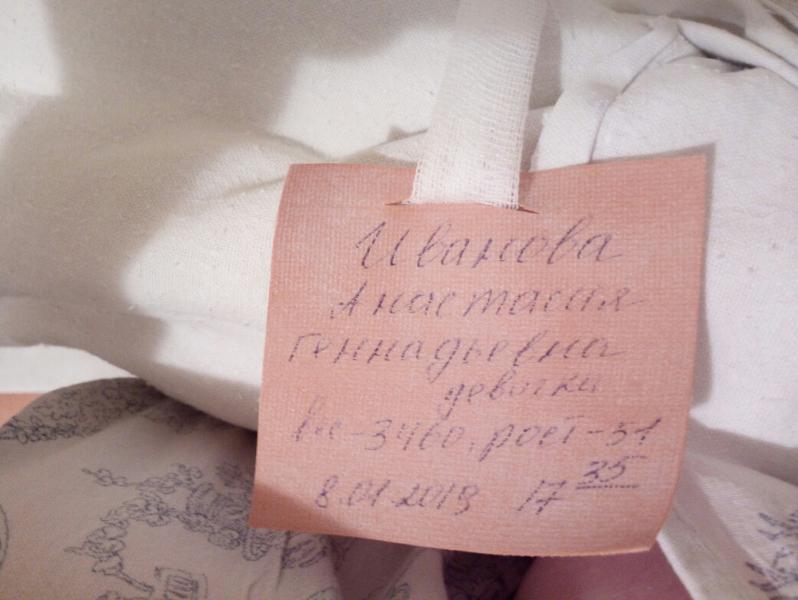 Иванова
Анастасия
Геннадьевна
девочка
вес-3460, рост-51
8.01.2019 17 35